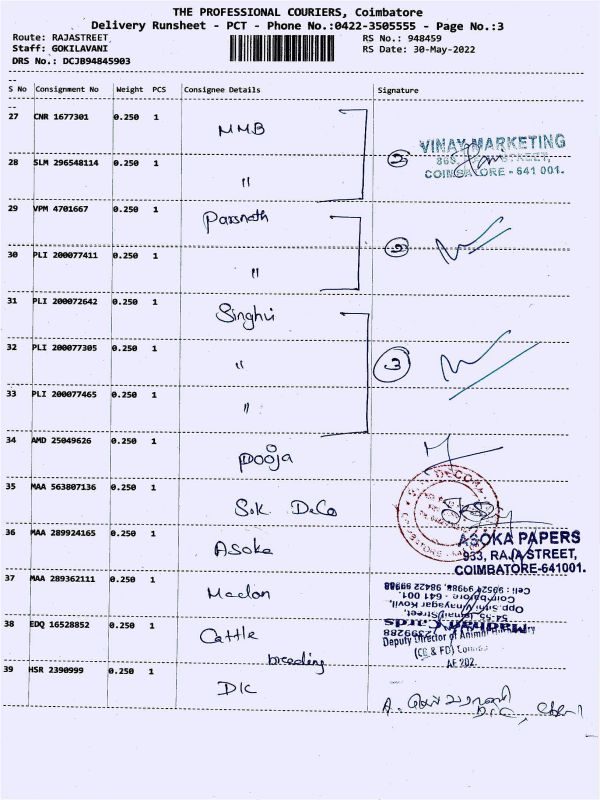 THE PROFESSIONAL COURIERS, Coimbatore
Delivery Runsheet - PCT - Phone No.:0422-3505555 - Page No.:3
Route: RAJASTREET
RS No.: 948459
Staff: GOKILAVANI
RS Date: 30-May-2022
DRS No.: DCJB94845903
S No Consignment No Weight PCS Consignee Details Signature
27 CNR 1677301 0.250 1 MMB
28 SLM 296548114 0.250 1 "
2 VINAY MARKETING
STREET,
COIMBATORE - 641 001.
29 VPM 4701667 0.250 1 Parsnath
30 PLI 200077411 0.250 1 "
2
31 PLI 200072642 0.250 1 Singhvi
32 PLI 200077305 0.250 1 "
3
33 PLI 200077465 0.250 1 "
34 AMD 25049626 0.250 1 Pooja
35 MAA 563807136 0.250 1 S.K DeCo
DECOR
36 MAA 289924165 0.250 1 Asoka
ASOKA PAPERS
933, RAJA STREET,
COIMBATORE-641001.
37 MAA 289362111 0.250 1
Cell : 99524 99988, 98422 99988
Coimbatore - 641 001.
Opp.Sithi Vinayagar Kovil,
Street,
Madhan Cards
38 EDQ 16528852 0.250 1 Cattle
breeding
Deputy Director of Animal
(CB & FD)
AF 202
39 HSR 2390999 0.250 1 DIC